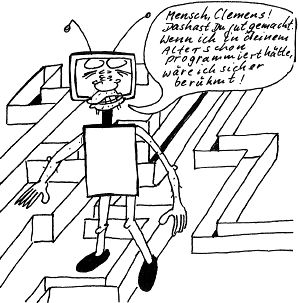 Mensch, Clemens!
Das hast Du gut gemacht.
Wenn ich in deinem
Alter schon
programmiert hätte,
wäre ich sicher
berühmt!